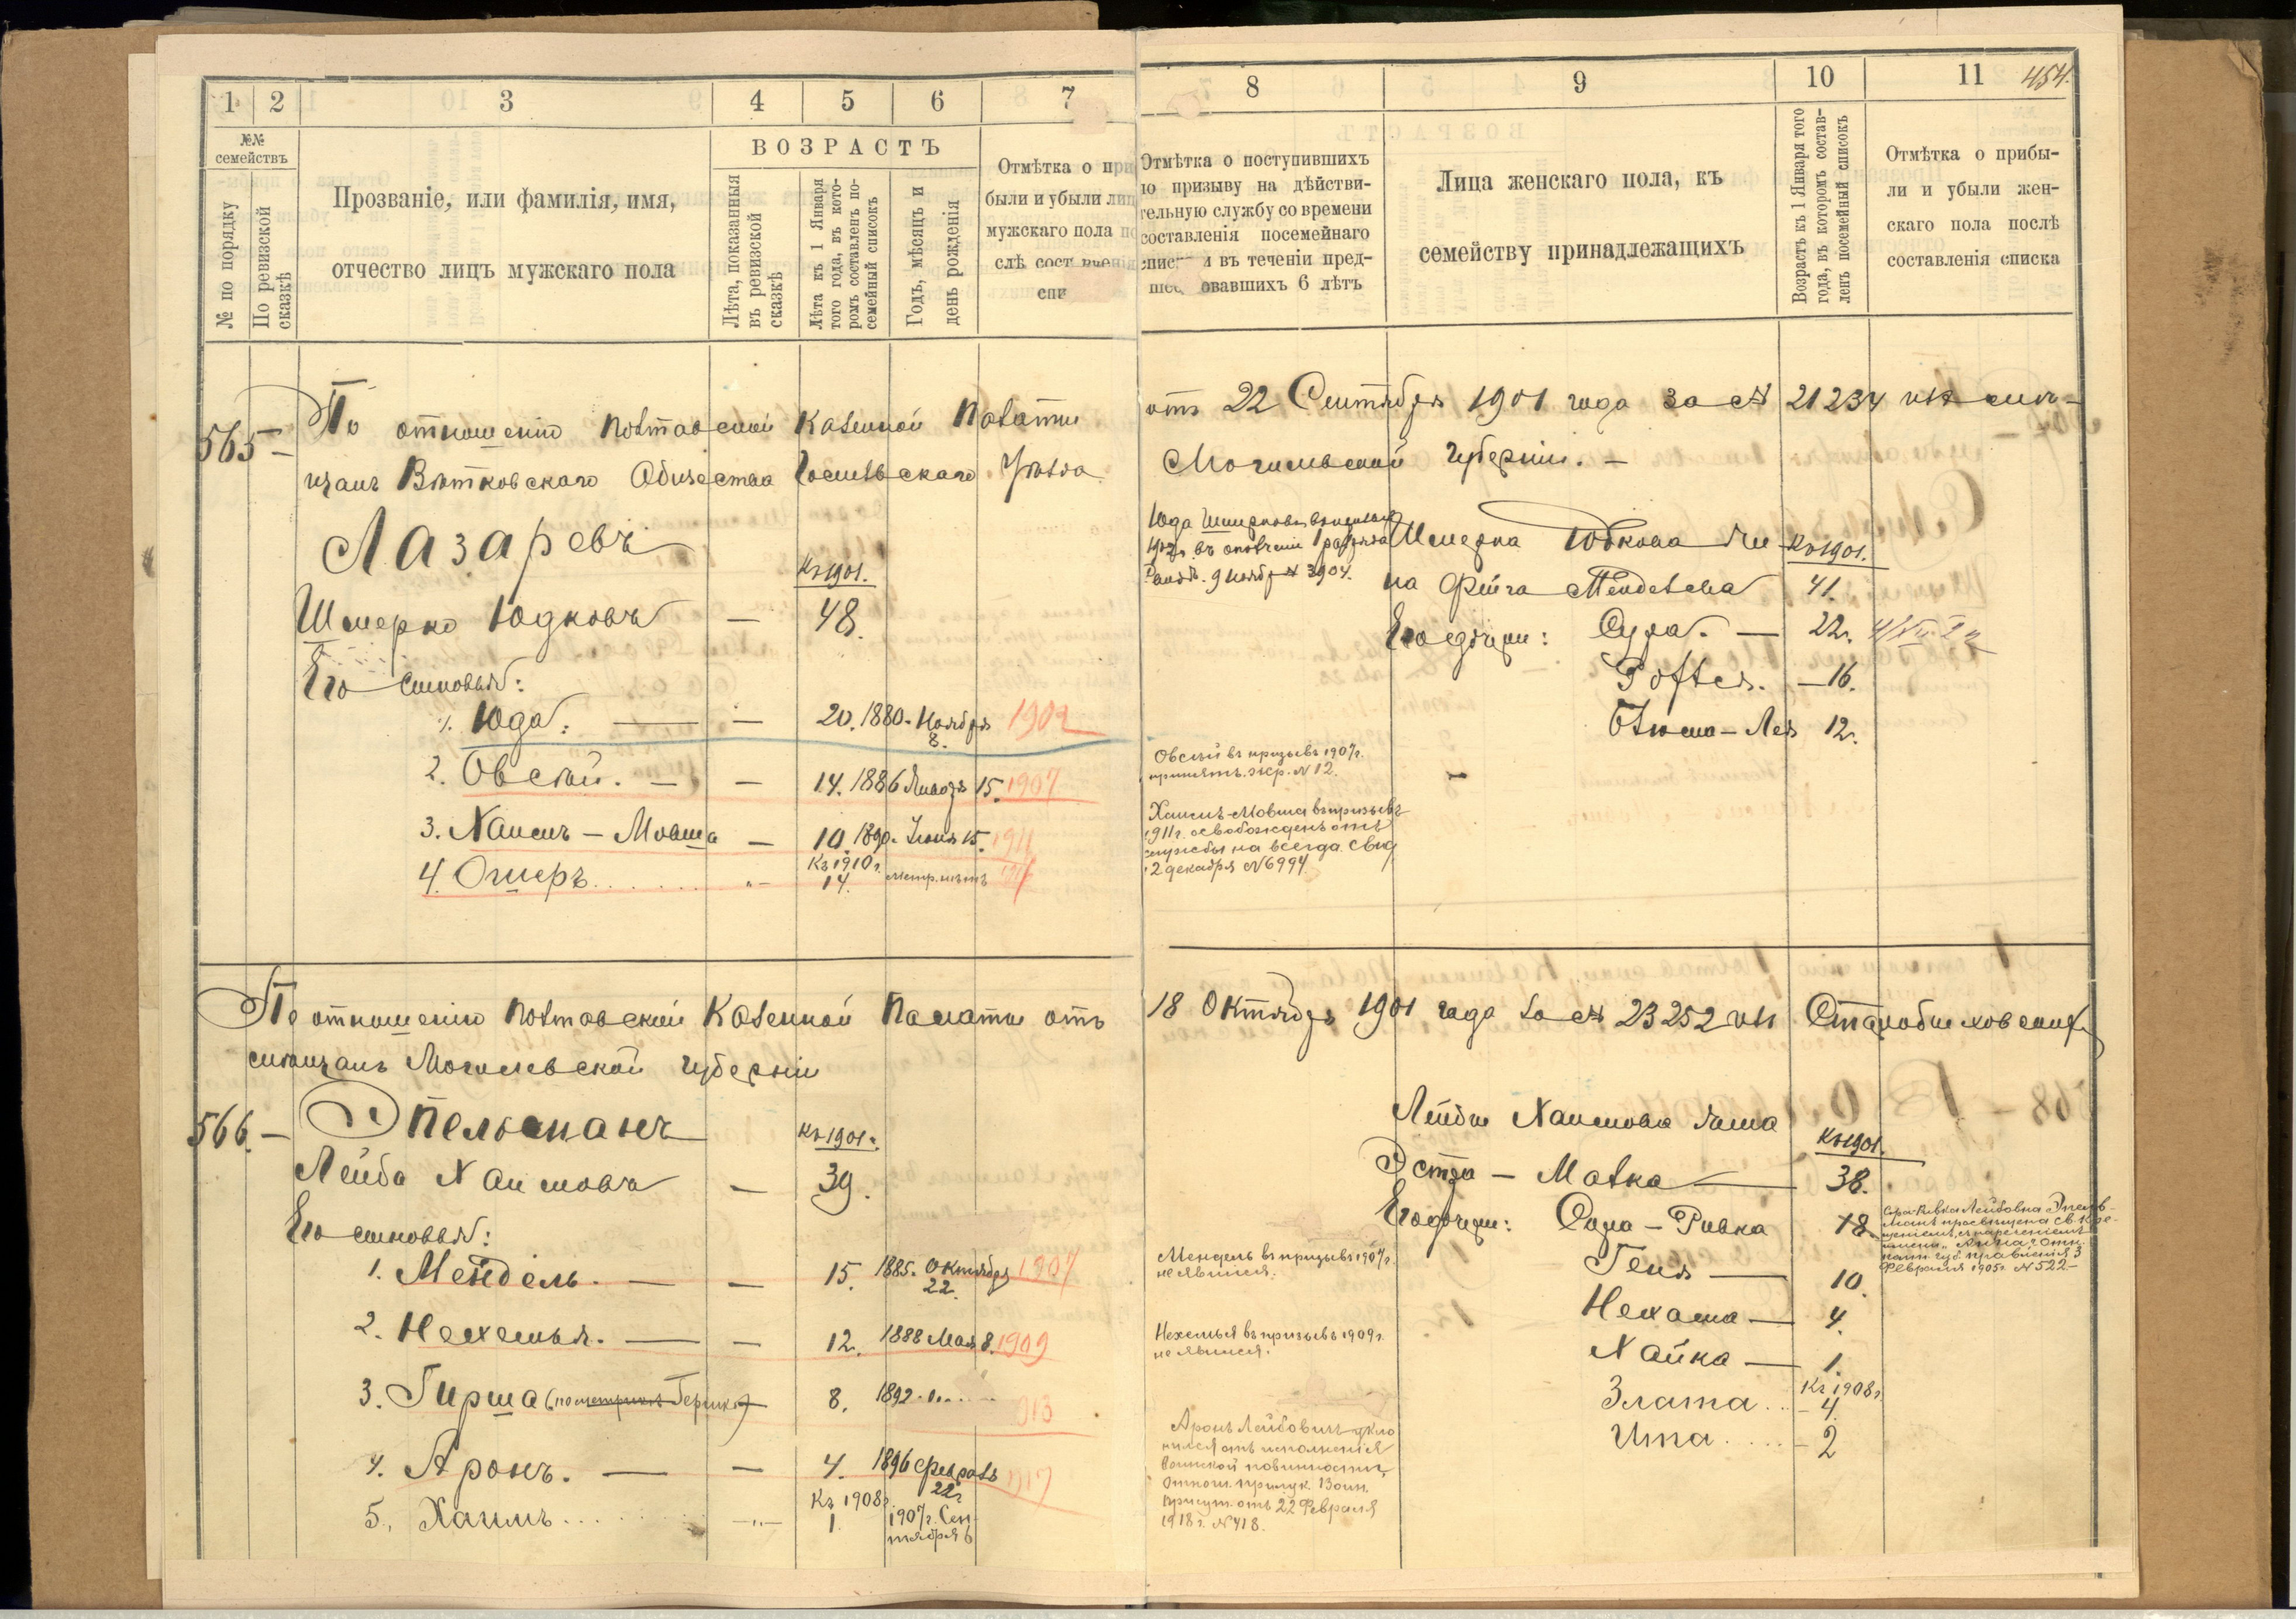 1 2 3 4 5 6 7
№№ семействъ
№ по порядку
По ревизской сказкѣ
Прозваніе, или фамилія, имя,
отчество лицъ мужскаго пола
ВОЗРАСТЪ
Лѣта, показанныя
въ ревизской
сказкѣ
Лѣта къ 1 Января
того года, въ кото-
ромъ составленъ по-
семейный списокъ
Годъ, мѣсяцъ и
день рожденія
Отмѣтка о при
были и убыли лиц
мужскаго пола по
слѣ составленія
спи
565 По отношенію Полтавской Казенной Палаты
щанъ Вѣтковскаго Общества Гомельскаго Уѣзда
Лазаревъ
Къ 1901.
Шмерко Юдковъ — 48.
Его сыновья:
1. Юда. — — 20. 1880. Ноября 8. 1902
2. Овсѣй. — — 14. 1886 Января 15. 1907
3. Хаимъ-Мовша — 10. 1890. Іюня 15. 1911
Къ 1910 г.
4. Ошеръ 14. метр. нѣтъ
По отношенію Полтавской Казенной Палаты отъ
Могилевской губерніи
566. — Эпельманъ
Къ 1901 г.
Лейба Хаимовъ — 39.
Его сыновья:
1. Мендель. — — 15. 1885. Октября 22. 1907
2. Нехемья. — — 12. 1888 Мая 8. 1909
3. Гирша (по метрикѣ Гершко) 8. 1892. 913
4. Аронъ. — — 4. 1896 Февраль 22
Къ 1908 г.
5. Хаимъ 1. 1907 г. Сен-
тября 6
8 9 10 11 454.
Отмѣтка о поступившихъ
по призыву на дѣйстви-
тельную службу со времени
составленія посемейнаго
списка и въ теченіи пред-
шествовавшихъ 6 лѣтъ
Лица женскаго пола, къ
семейству принадлежащихъ
Возрастъ къ 1 Января того
года, въ которомъ состав-
ленъ посемейный списокъ
Отмѣтка о прибы-
ли и убыли жен-
скаго пола послѣ
составленія списка
отъ 22 Сентября 1901 года за № 21234 изъ
Могилевской губерніи. —
Юда Шмерковъ
1902 г. въ ополченіе 1 разряда
9 Ноября № 3904.
Шмерка Юдкова же-
Къ 1901.
на Фейга Менделева 41.
Его дочери: Сура. — 22.
— 16.
Лея 12.
Овсѣй въ призывъ 1907 г.
принятъ. жр. № 12.
Хаимъ-Мовша въ призывъ
1911 г. освобожденъ отъ
службы на всегда. Свид
2 декабря № 6994.
18 Октября 1901 года за № 23252 изъ
Лейбы Хаимова жена
Къ 1901.
Эстра-Малка — 38.
Его дочери: Сара-Ривка 18.
Геня — 10.
Нехама — 4.
Хайка — 1.
Къ 1908 г.
Злата 4.
Ита 2
Сара-Ривка Лейбовна Эпель-
манъ просвѣщена св. кре-
щеніемъ, съ нареченіемъ
имени „Анна".
губ. правленія 3
Февраля 1905 г. № 522.
Мендель въ призывъ 1907 г.
не явился.
Нехемья въ призывъ 1909 г.
не явился.
Аронъ Лейбовичъ укло-
нился отъ исполненія
воинской повинности,
воин.
присут. отъ 22 Февраля
1918 г. № 418.